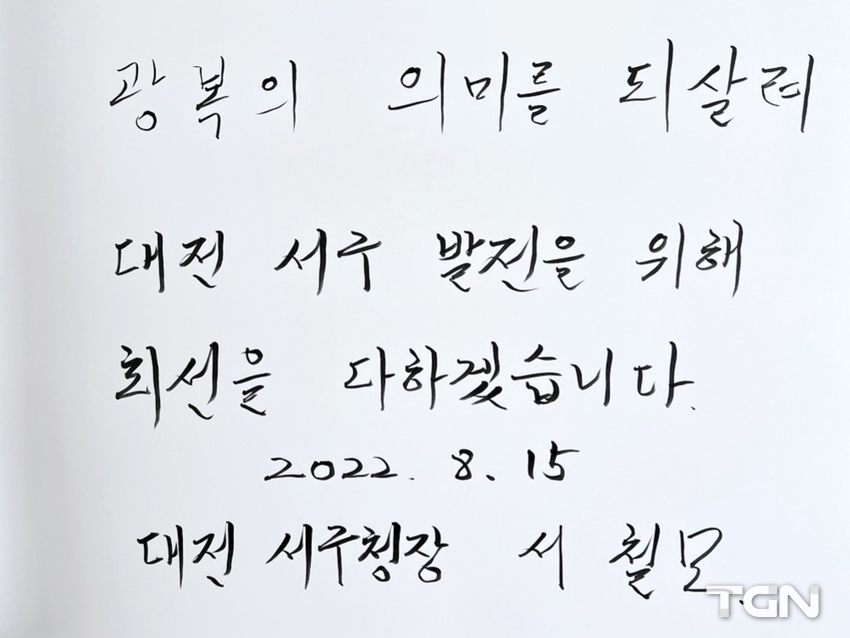 광복의 의미를 되살려
대전 서구 발전을 위해
최선을 다하겠습니다.
2022. 8. 15
대전 서구청장 서철모
TGN